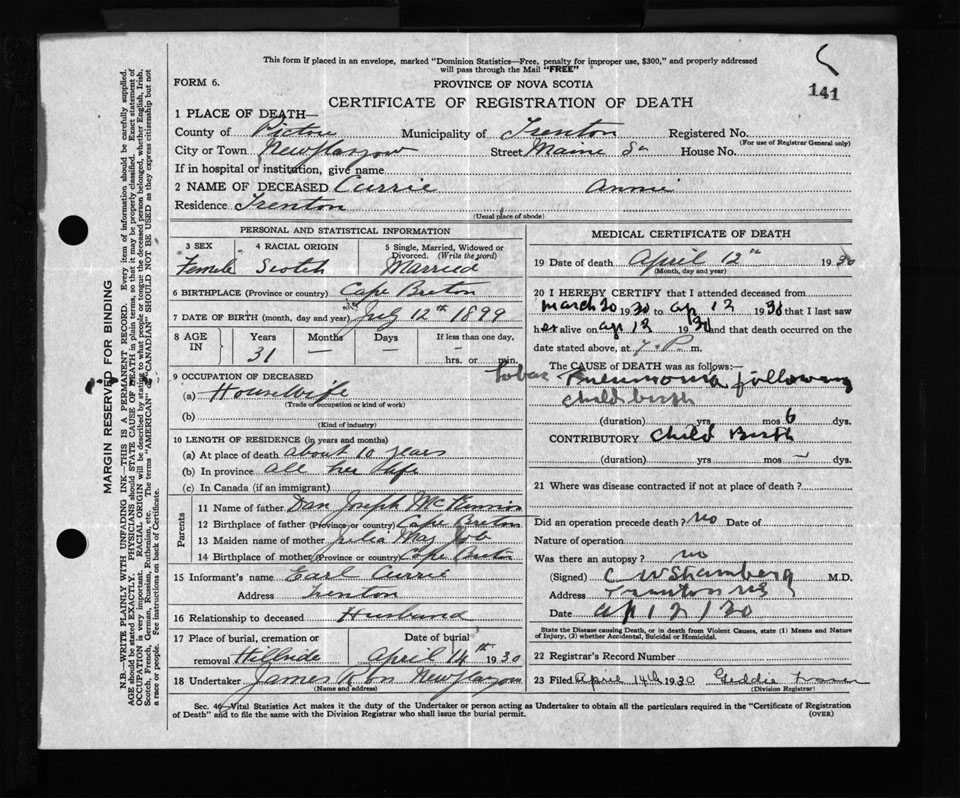 This form if placed in an envelope, marked "Dominion Statistics—Free, penalty for improper use, $300," and properly addressed
will pass through the Mail "FREE"
FORM 6.
PROVINCE OF NOVA SCOTIA
141
CERTIFICATE OF REGISTRATION OF DEATH
1 PLACE OF DEATH—
County of Pictou Municipality of Trenton Registered No.
(For use of Registrar General only)
City or Town New Glasgow Street Maine St House No.
If in hospital or institution, give name
2 NAME OF DECEASED Currie Annie
Residence Trenton
(Usual place of abode)
PERSONAL AND STATISTICAL INFORMATION
3 SEX 4 RACIAL ORIGIN 5 Single, Married, Widowed or
Divorced. (Write the word)
Female Scotch Married
6 BIRTHPLACE (Province or country) Cape Breton
7 DATE OF BIRTH (month, day and year) July 12th 1899
8 AGE IN Years Months Days If less than one day,
31 — — — hrs. or min.
9 OCCUPATION OF DECEASED
(a) Housewife
(Trade or occupation or kind of work)
(b)
(Kind of industry)
10 LENGTH OF RESIDENCE (in years and months)
(a) At place of death about 10 years
(b) In province all her life
(c) In Canada (if an immigrant)
Parents
11 Name of father Dan Joseph
12 Birthplace of father (Province or country) Cape Breton
13 Maiden name of mother Julia
14 Birthplace of mother (Province or country) Cape Breton
15 Informant's name Earl Currie
Address Trenton
16 Relationship to deceased Husband
17 Place of burial, cremation or Date of burial
removal Hillside April 14th 1930
18 Undertaker James New Glasgow
(Name and address)
MEDICAL CERTIFICATE OF DEATH
19 Date of death April 12th 1930
(Month, day and year)
20 I HEREBY CERTIFY that I attended deceased from
march 30 1930 to ap 12 1930 that I last saw
her alive on ap 12 1930 and that death occurred on the
date stated above, at 7 P. m.
The CAUSE OF DEATH was as follows:—
Lobar Pneumonia following
childbirth
(duration) yrs mos 6 dys.
CONTRIBUTORY Child Birth
(duration) yrs mos — dys.
21 Where was disease contracted if not at place of death?
Did an operation precede death? no Date of
Nature of operation
Was there an autopsy? no
(Signed) C W M.D.
Address Trenton NS
Date ap 12/30
State the Disease causing Death, or in death from Violent Causes, state (1) Means and Nature
of Injury, (2) whether Accidental, Suicidal or Homicidal.
22 Registrar's Record Number
23 Filed April 14th 1930 Geddie
(Division Registrar)
Sec. 46—Vital Statistics Act makes it the duty of the Undertaker or person acting as Undertaker to obtain all the particulars required in the "Certificate of Registration
of Death" and to file the same with the Division Registrar who shall issue the burial permit. (OVER)
MARGIN RESERVED FOR BINDING
N.B.—WRITE PLAINLY WITH UNFADING INK—THIS IS A PERMANENT RECORD. Every item of information should be carefully supplied.
AGE should be stated EXACTLY. PHYSICIANS should STATE CAUSE OF DEATH in plain terms, so that it may be properly classified. Exact statement of
OCCUPATION is very important. RACIAL ORIGIN will be described by stating to what people or tongue the deceased person belonged, whether English, Irish,
Scotch, French, German, Russian, Ruthenian, etc. The terms "AMERICAN" or "CANADIAN" SHOULD NOT BE USED as they express citizenship but not
a race or people. Fee instructions on back of Certificate.